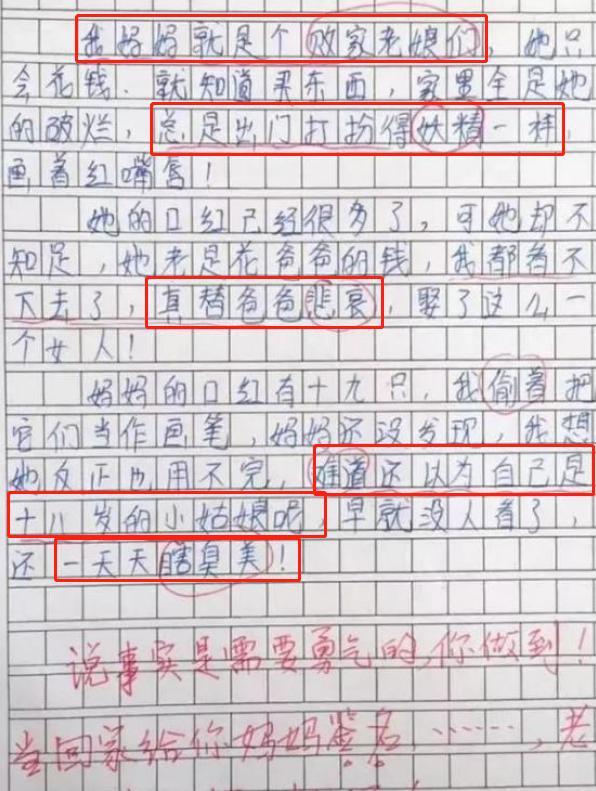 我妈妈就是个败家老娘们，她只
会花钱．就知道买东西，家里全是她
的破烂，总是出门打扮得妖精一样，
画着红嘴唇！
她的口红已经很多了，可她却不
知足，她老是花爸爸的钱，我都看不
下去了，真替爸爸悲哀，娶了这么一
个女人！
妈妈的口红有十九只，我偷着把
它们当作画笔，妈妈还没发现，我想
她反正也用不完，难道还以为自己是
十八岁的小姑娘呢，早就没人看了，
还一天天瞎臭美！
说事实是需要勇气的，你做到！
当回家给你妈妈签名，……，老